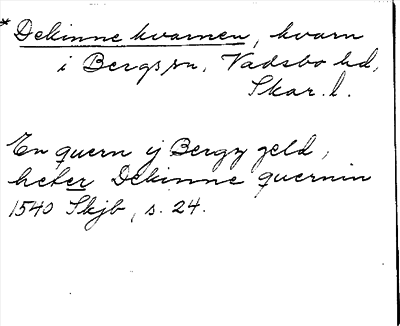 *Dekinne kvarnen, kvarn
i Bergs sn, Vadsbo hd,
Skar. l.
En quern ij Bergz geld,
heter Dekinne quernin
1540 Skjb, s. 24.